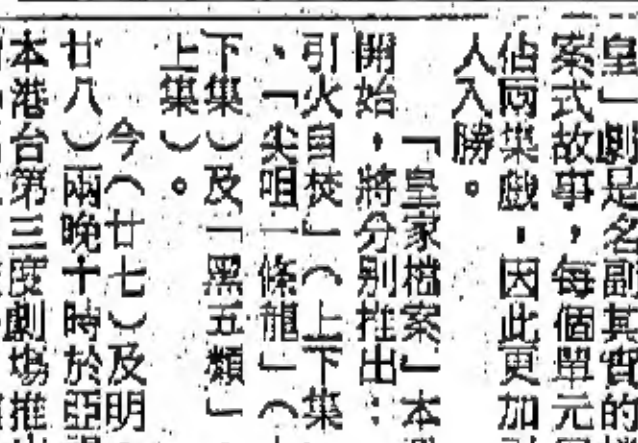 皇」劇是名副其實的
案式故事，每個單元
佔兩集戲，因此更加
人入勝。
「皇家檔案」本
開始，將分別推出：
引火自焚」（上下集
、「尖咀一條龍」（
下集）及「黑五類」
上集）。
今（廿七）及明
廿八）兩晚十時於亞
本港台第三度劇場推